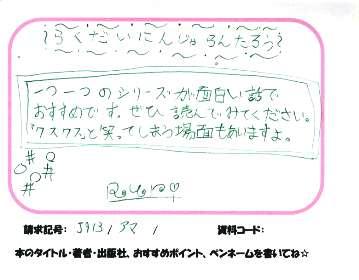 らくだいにんじゃらんたろう
一つ一つのシリーズが面白い話で
おすすめです。ぜひ読んでみてください。
クスクスと笑ってしまう場面もありますよ。
請求記号: J913/アマ / 資料コード:
本のタイトル・著者・出版社、おすすめポイント、ペンネームを書いてね☆